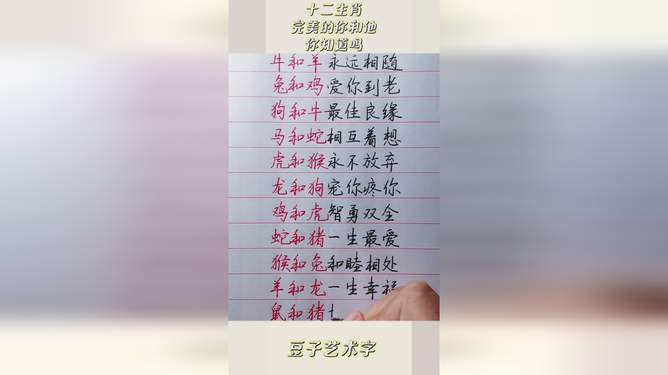 十二生肖
完美的你和他
你知道吗
牛和羊永远相随
兔和鸡爱你到老
狗和牛最佳良缘
马和蛇相互着想
虎和猴永不放弃
龙和狗宠你疼你
鸡和虎智勇双全
蛇和猪一生最爱
猴和兔和睦相处
羊和龙一生幸福
鼠和猪
豆子艺术字